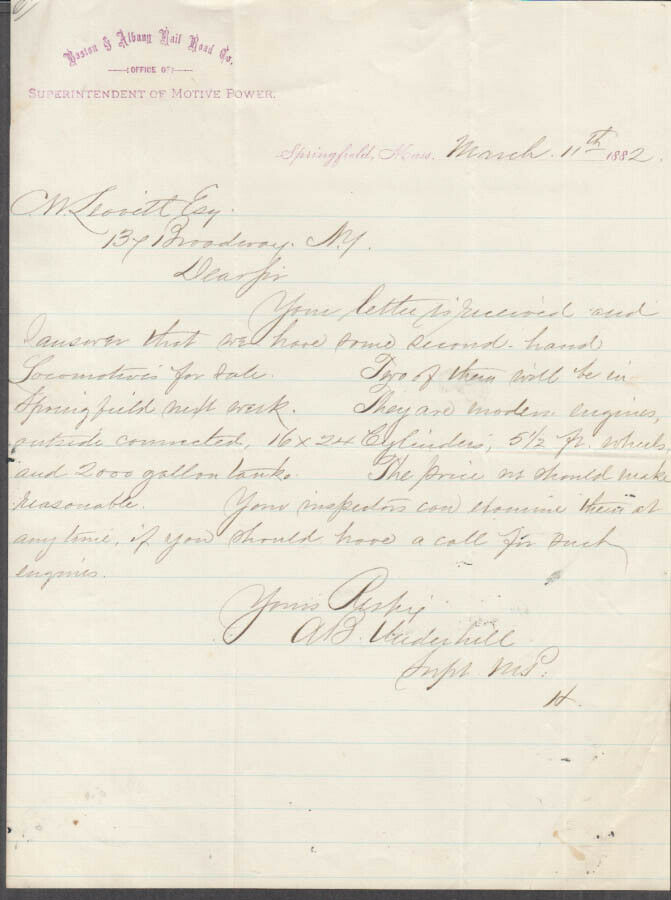 Boston & Albany Rail Road Co.
OFFICE OF
SUPERINTENDENT OF MOTIVE POWER.
Springfield, Mass. March. 11th 1882.
C.W. Leavitt Esq.
Broadway. N.Y.
Dear Sir
Your letter is received and
I answer that we have some second-hand
Locomotives for sale. Two of them will be in
Springfield next week. They are modern engines,
outside connected, 16 x 24 Cylinders, 5 1/2 ft. wheels,
and 2000 gallon tanks. The price we should make
reasonable. Your inspectors can examine them at
any time, if you should have a call for such
engines.
Yours Respy
A.B. Underhill
Supt. M.P.
H.